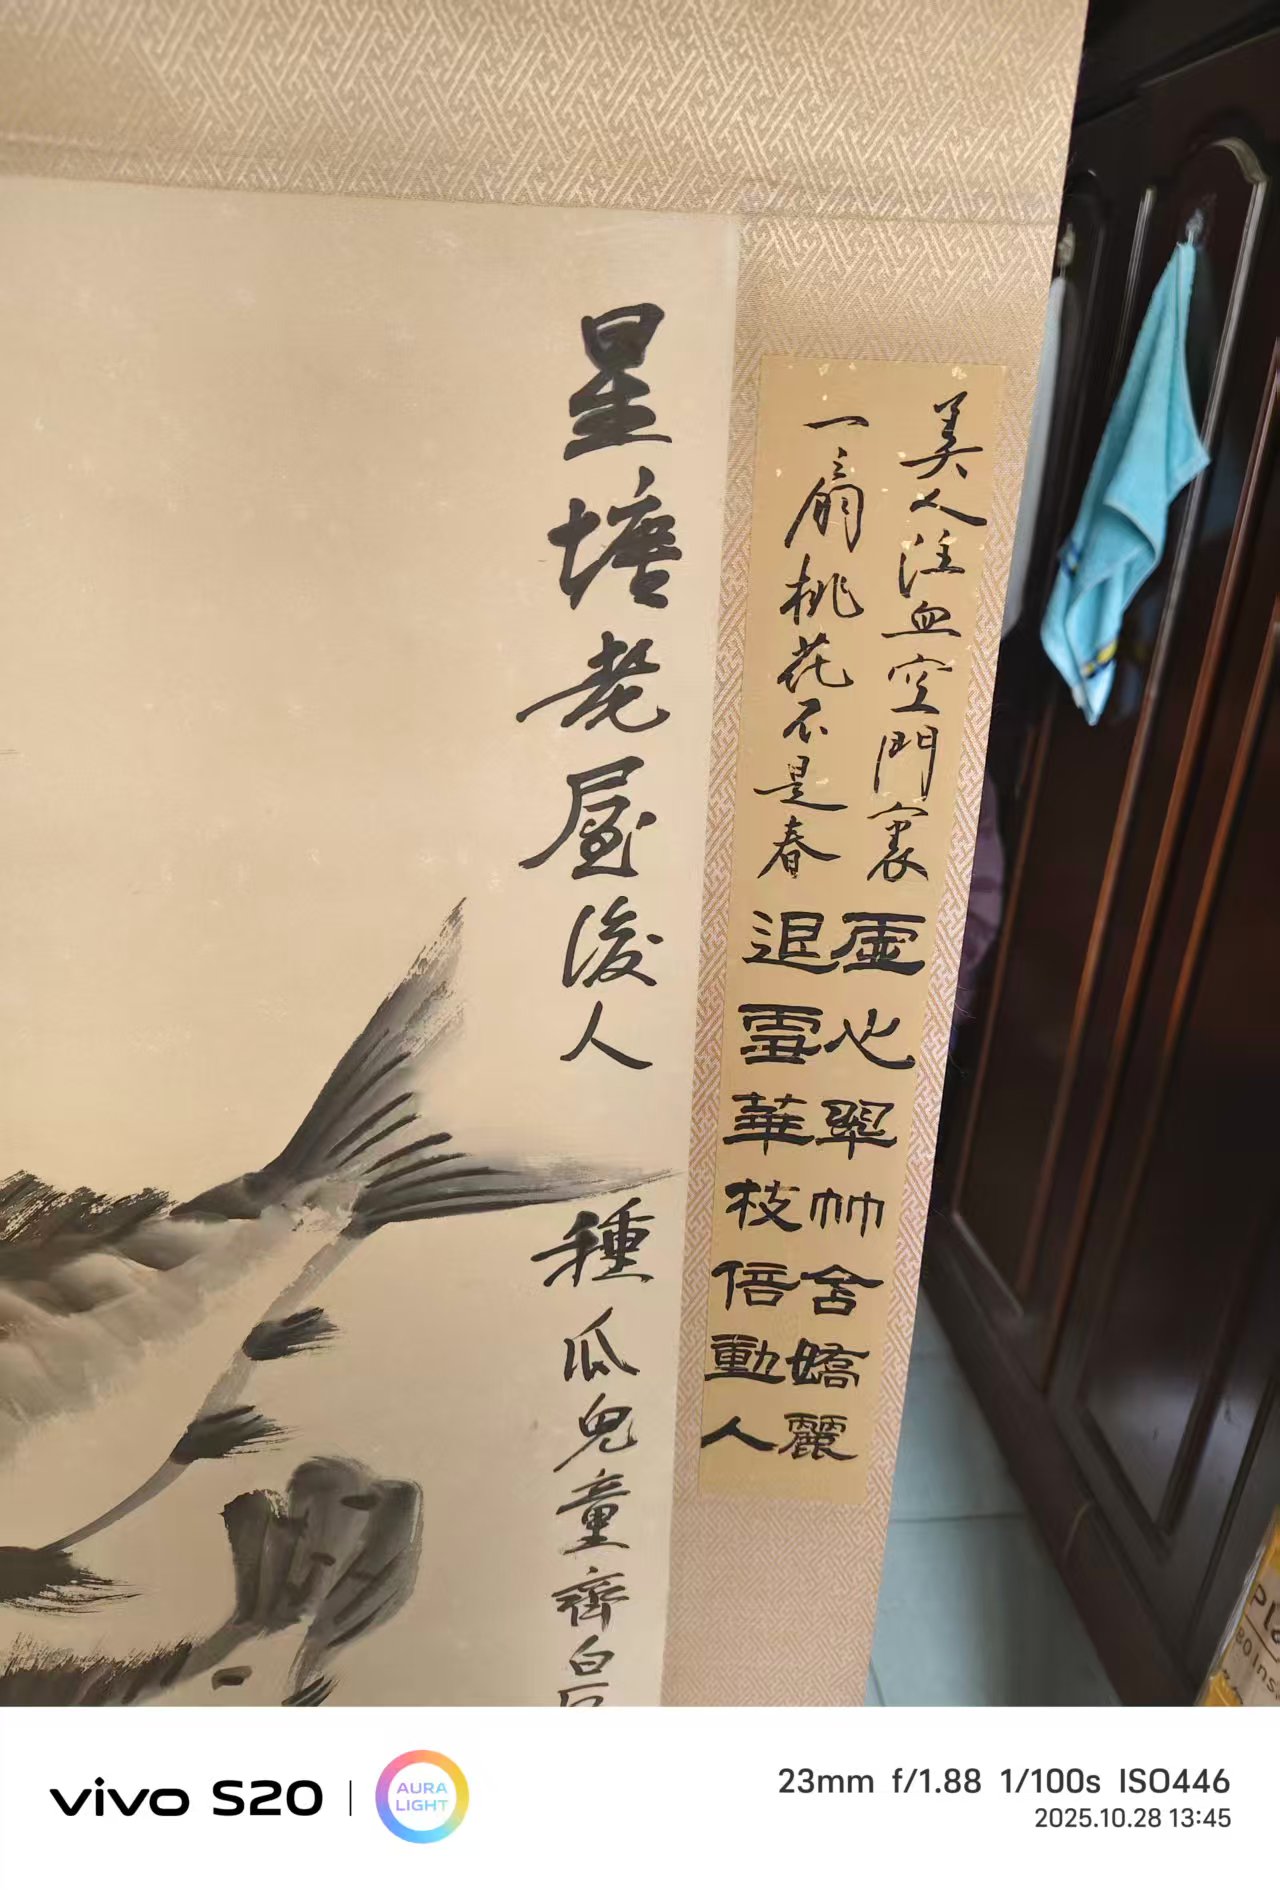 美人注血空門裏
一扇桃花不是春
虛心翠竹含嬌麗
退雪華枝倍動人
星塘老屋後人
種瓜兒童齊白
Pl
80 Ins
vivo S20
AURA LIGHT
23mm f/1.88 1/100s ISO446
2025.10.28 13:45